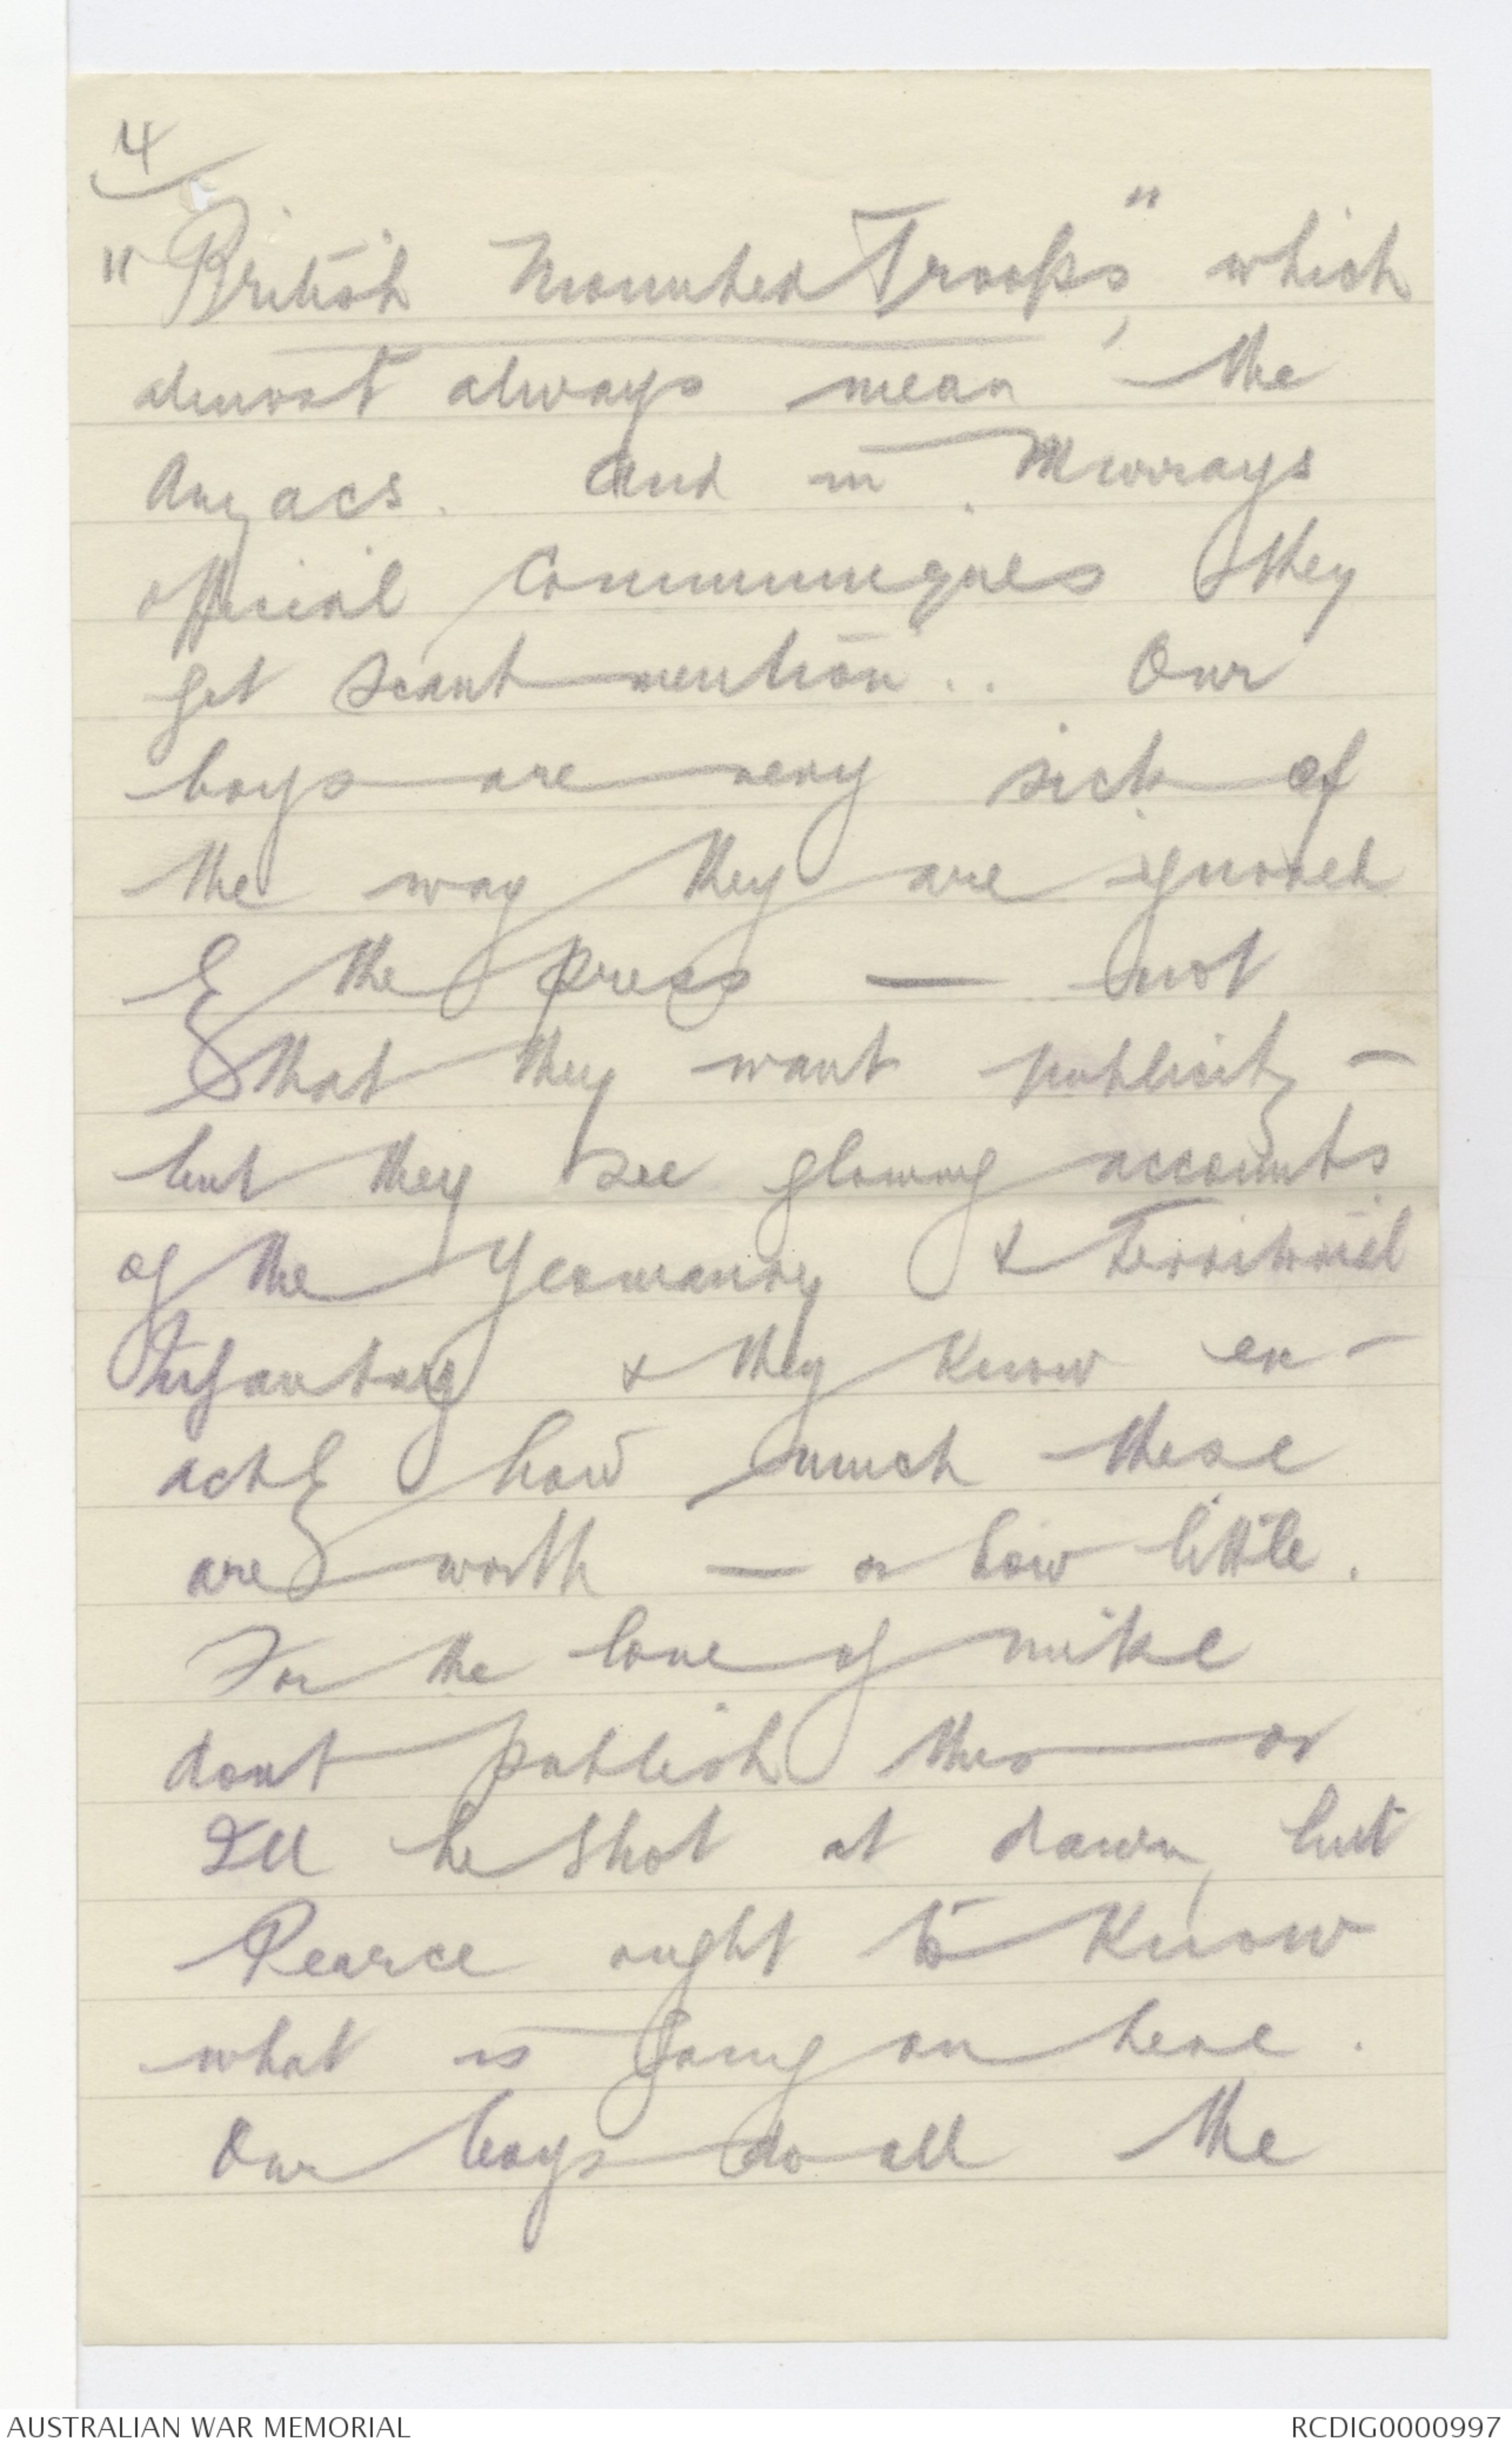 4
"British Mounted Troops", which
almost always mean the
Anzacs. And in Murrays
official Communiques they
get scant mention.. Our
boys are very sick of
the way they are ignored
by the press — not
that they want publicity —
but they see glowing accounts
of the Yeomanry & Territorial
Infantry & they know ex-
actly how much these
are worth — or how little.
For the love of mike
dont publish this or
I'll be shot at dawn, but
Pearce ought to know
what is going on here.
Our boys do all the
AUSTRALIAN WAR MEMORIAL
RCDIG0000997